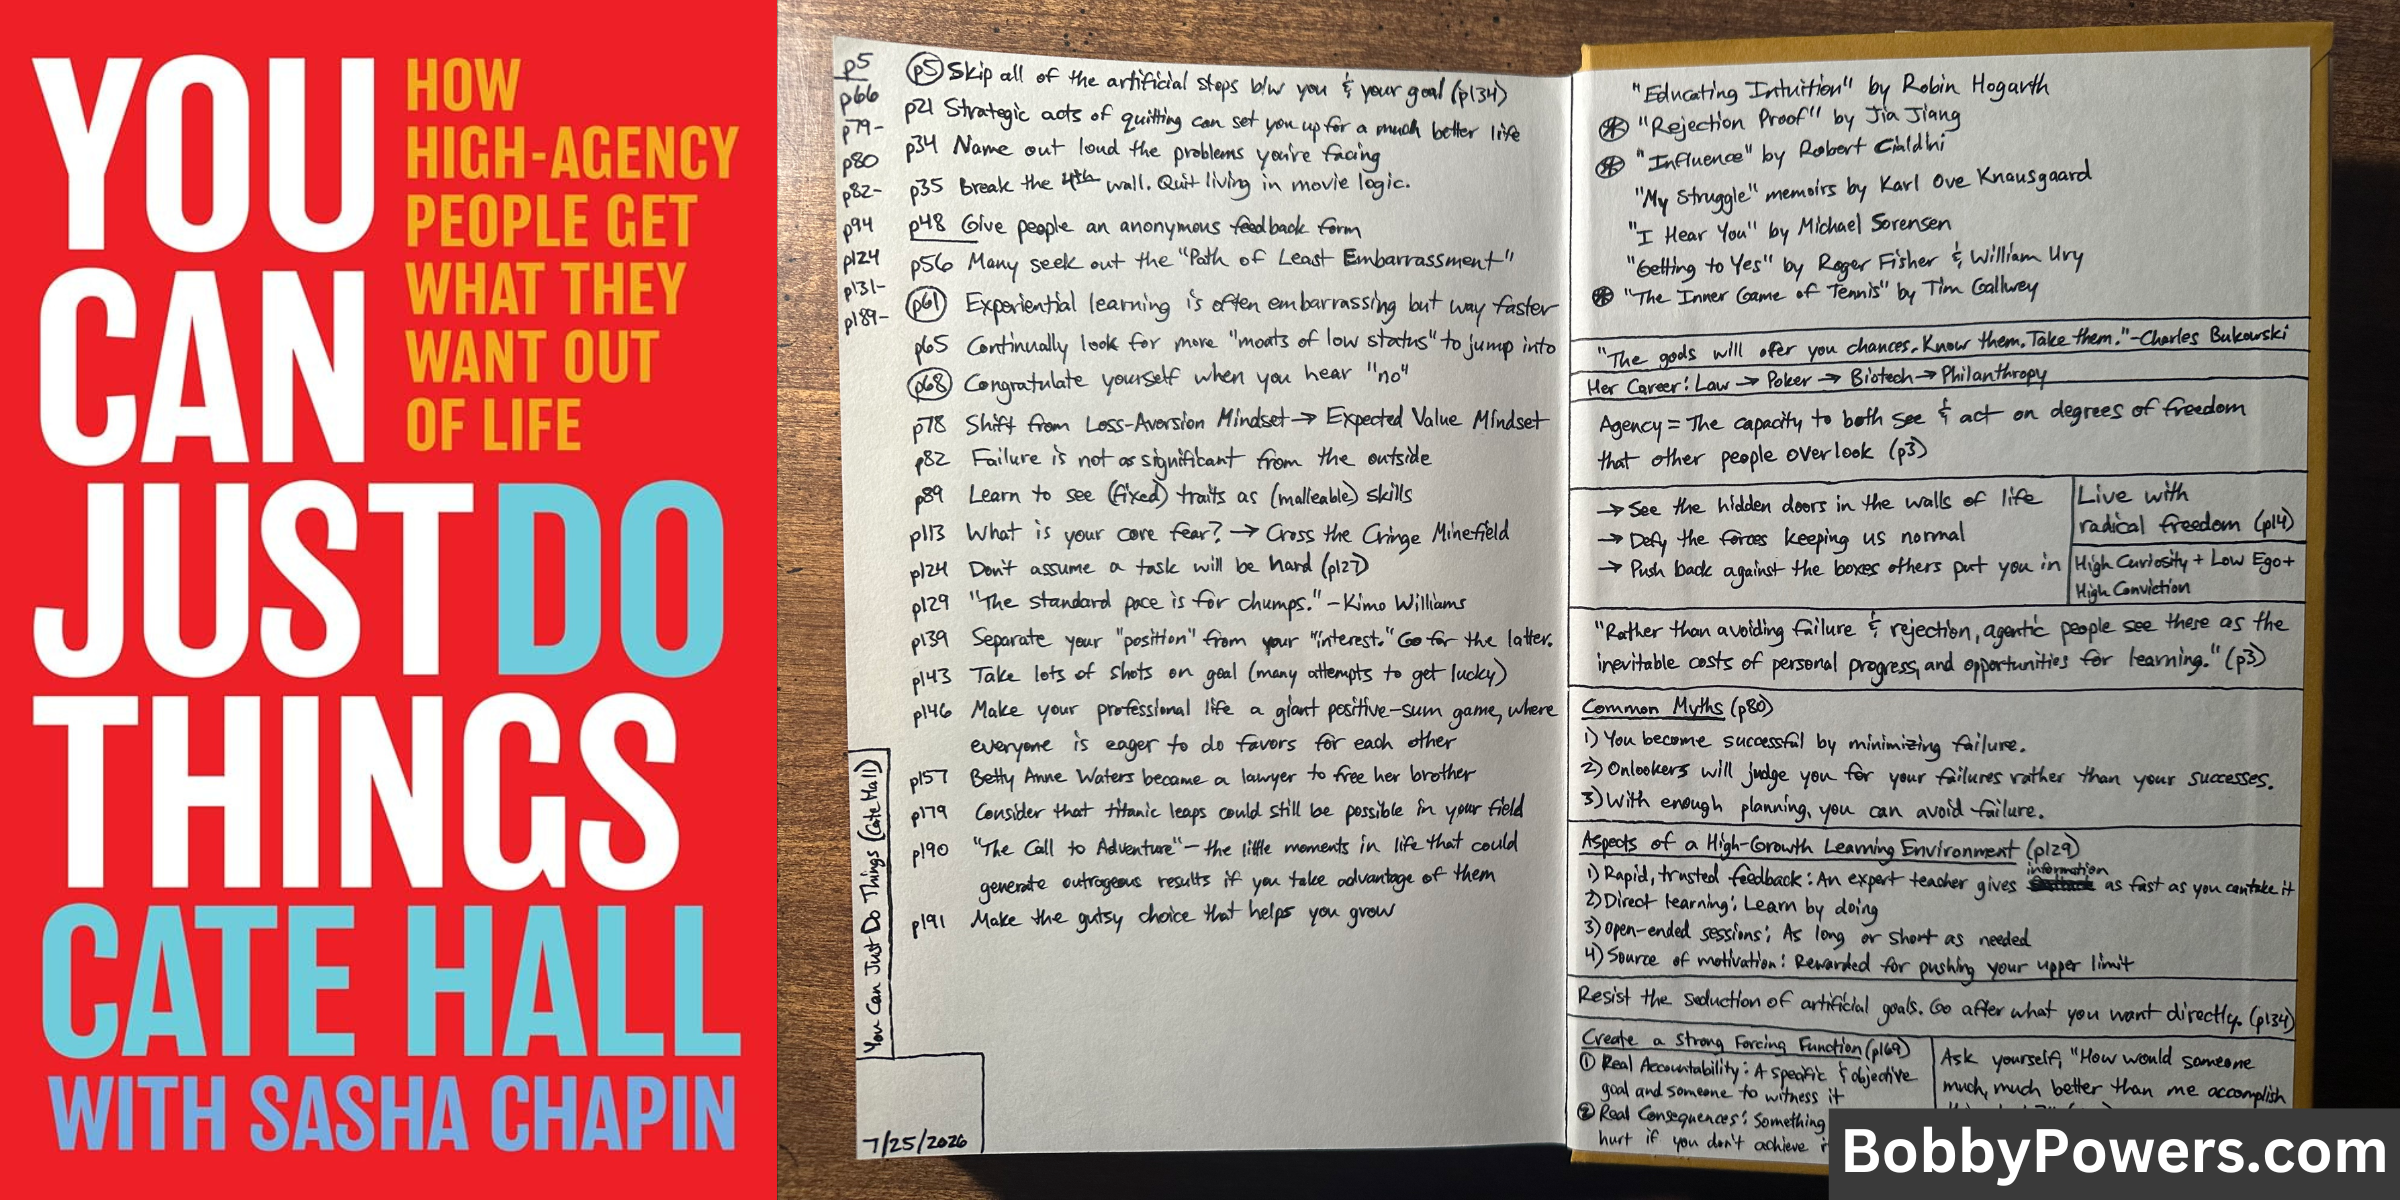 YOU
CAN
JUST DO
THINGS
HOW
HIGH-AGENCY
PEOPLE GET
WHAT THEY
WANT OUT
OF LIFE
CATE HALL
WITH SASHA CHAPIN
p5
p66
p79-
p80
p82-
p94
p124
p131-
p189-
p5 Skip all of the artificial steps b/w you & your goal (p134)
p21 Strategic acts of quitting can set you up for a much better life
p34 Name out loud the problems you're facing
p35 Break the 4th wall. Quit living in movie logic.
p48 Give people an anonymous feedback form
p56 Many seek out the "Path of Least Embarrassment"
p61 Experiential learning is often embarrassing but way faster
p65 Continually look for more "moats of low status" to jump into
p68 Congratulate yourself when you hear "no"
p78 Shift from Loss-Aversion Mindset → Expected Value Mindset
p82 Failure is not as significant from the outside
p89 Learn to see (fixed) traits as (malleable) skills
p113 What is your core fear? → Cross the Cringe Minefield
p124 Don't assume a task will be hard (p127)
p129 "The standard pace is for chumps." -Kimo Williams
p139 Separate your "position" from your "interest." Go for the latter.
p143 Take lots of shots on goal (many attempts to get lucky)
p146 Make your professional life a giant positive-sum game, where
everyone is eager to do favors for each other
p157 Betty Anne Waters became a lawyer to free her brother
p179 Consider that titanic leaps could still be possible in your field
p190 "The Call to Adventure" - the little moments in life that could
generate outrageous results if you take advantage of them
p191 Make the gutsy choice that helps you grow
You Can Just Do Things (Cate Hall)
7/25/2026
"Educating Intuition" by Robin Hogarth
"Rejection Proof" by Jia Jiang
"Influence" by Robert Cialdini
"My Struggle" memoirs by Karl Ove Knausgaard
"I Hear You" by Michael Sorensen
"Getting to Yes" by Roger Fisher & William Ury
"The Inner Game of Tennis" by Tim Gallwey
"The gods will offer you chances. Know them. Take them." -Charles Bukowski
Her Career: Law → Poker → Biotech → Philanthropy
Agency = The capacity to both see & act on degrees of freedom
that other people overlook (p3)
→ See the hidden doors in the walls of life
→ Defy the forces keeping us normal
→ Push back against the boxes others put you in
Live with
radical freedom (p14)
High Curiosity + Low Ego +
High Conviction
"Rather than avoiding failure & rejection, agentic people see these as the
inevitable costs of personal progress, and opportunities for learning." (p3)
Common Myths (p80)
1) You become successful by minimizing failure.
2) Onlookers will judge you for your failures rather than your successes.
3) With enough planning, you can avoid failure.
Aspects of a High-Growth Learning Environment (p129)
1) Rapid, trusted feedback: An expert teacher gives information as fast as you can take it
2) Direct learning: Learn by doing
3) Open-ended sessions: As long or short as needed
4) Source of motivation: Rewarded for pushing your upper limit
Resist the seduction of artificial goals. Go after what you want directly. (p134)
Create a Strong Forcing Function (p169)
① Real Accountability: A specific & objective
goal and someone to witness it
② Real Consequences: Something
hurt if you don't achieve
Ask yourself, "How would someone
much, much better than me accomplish
BobbyPowers.com